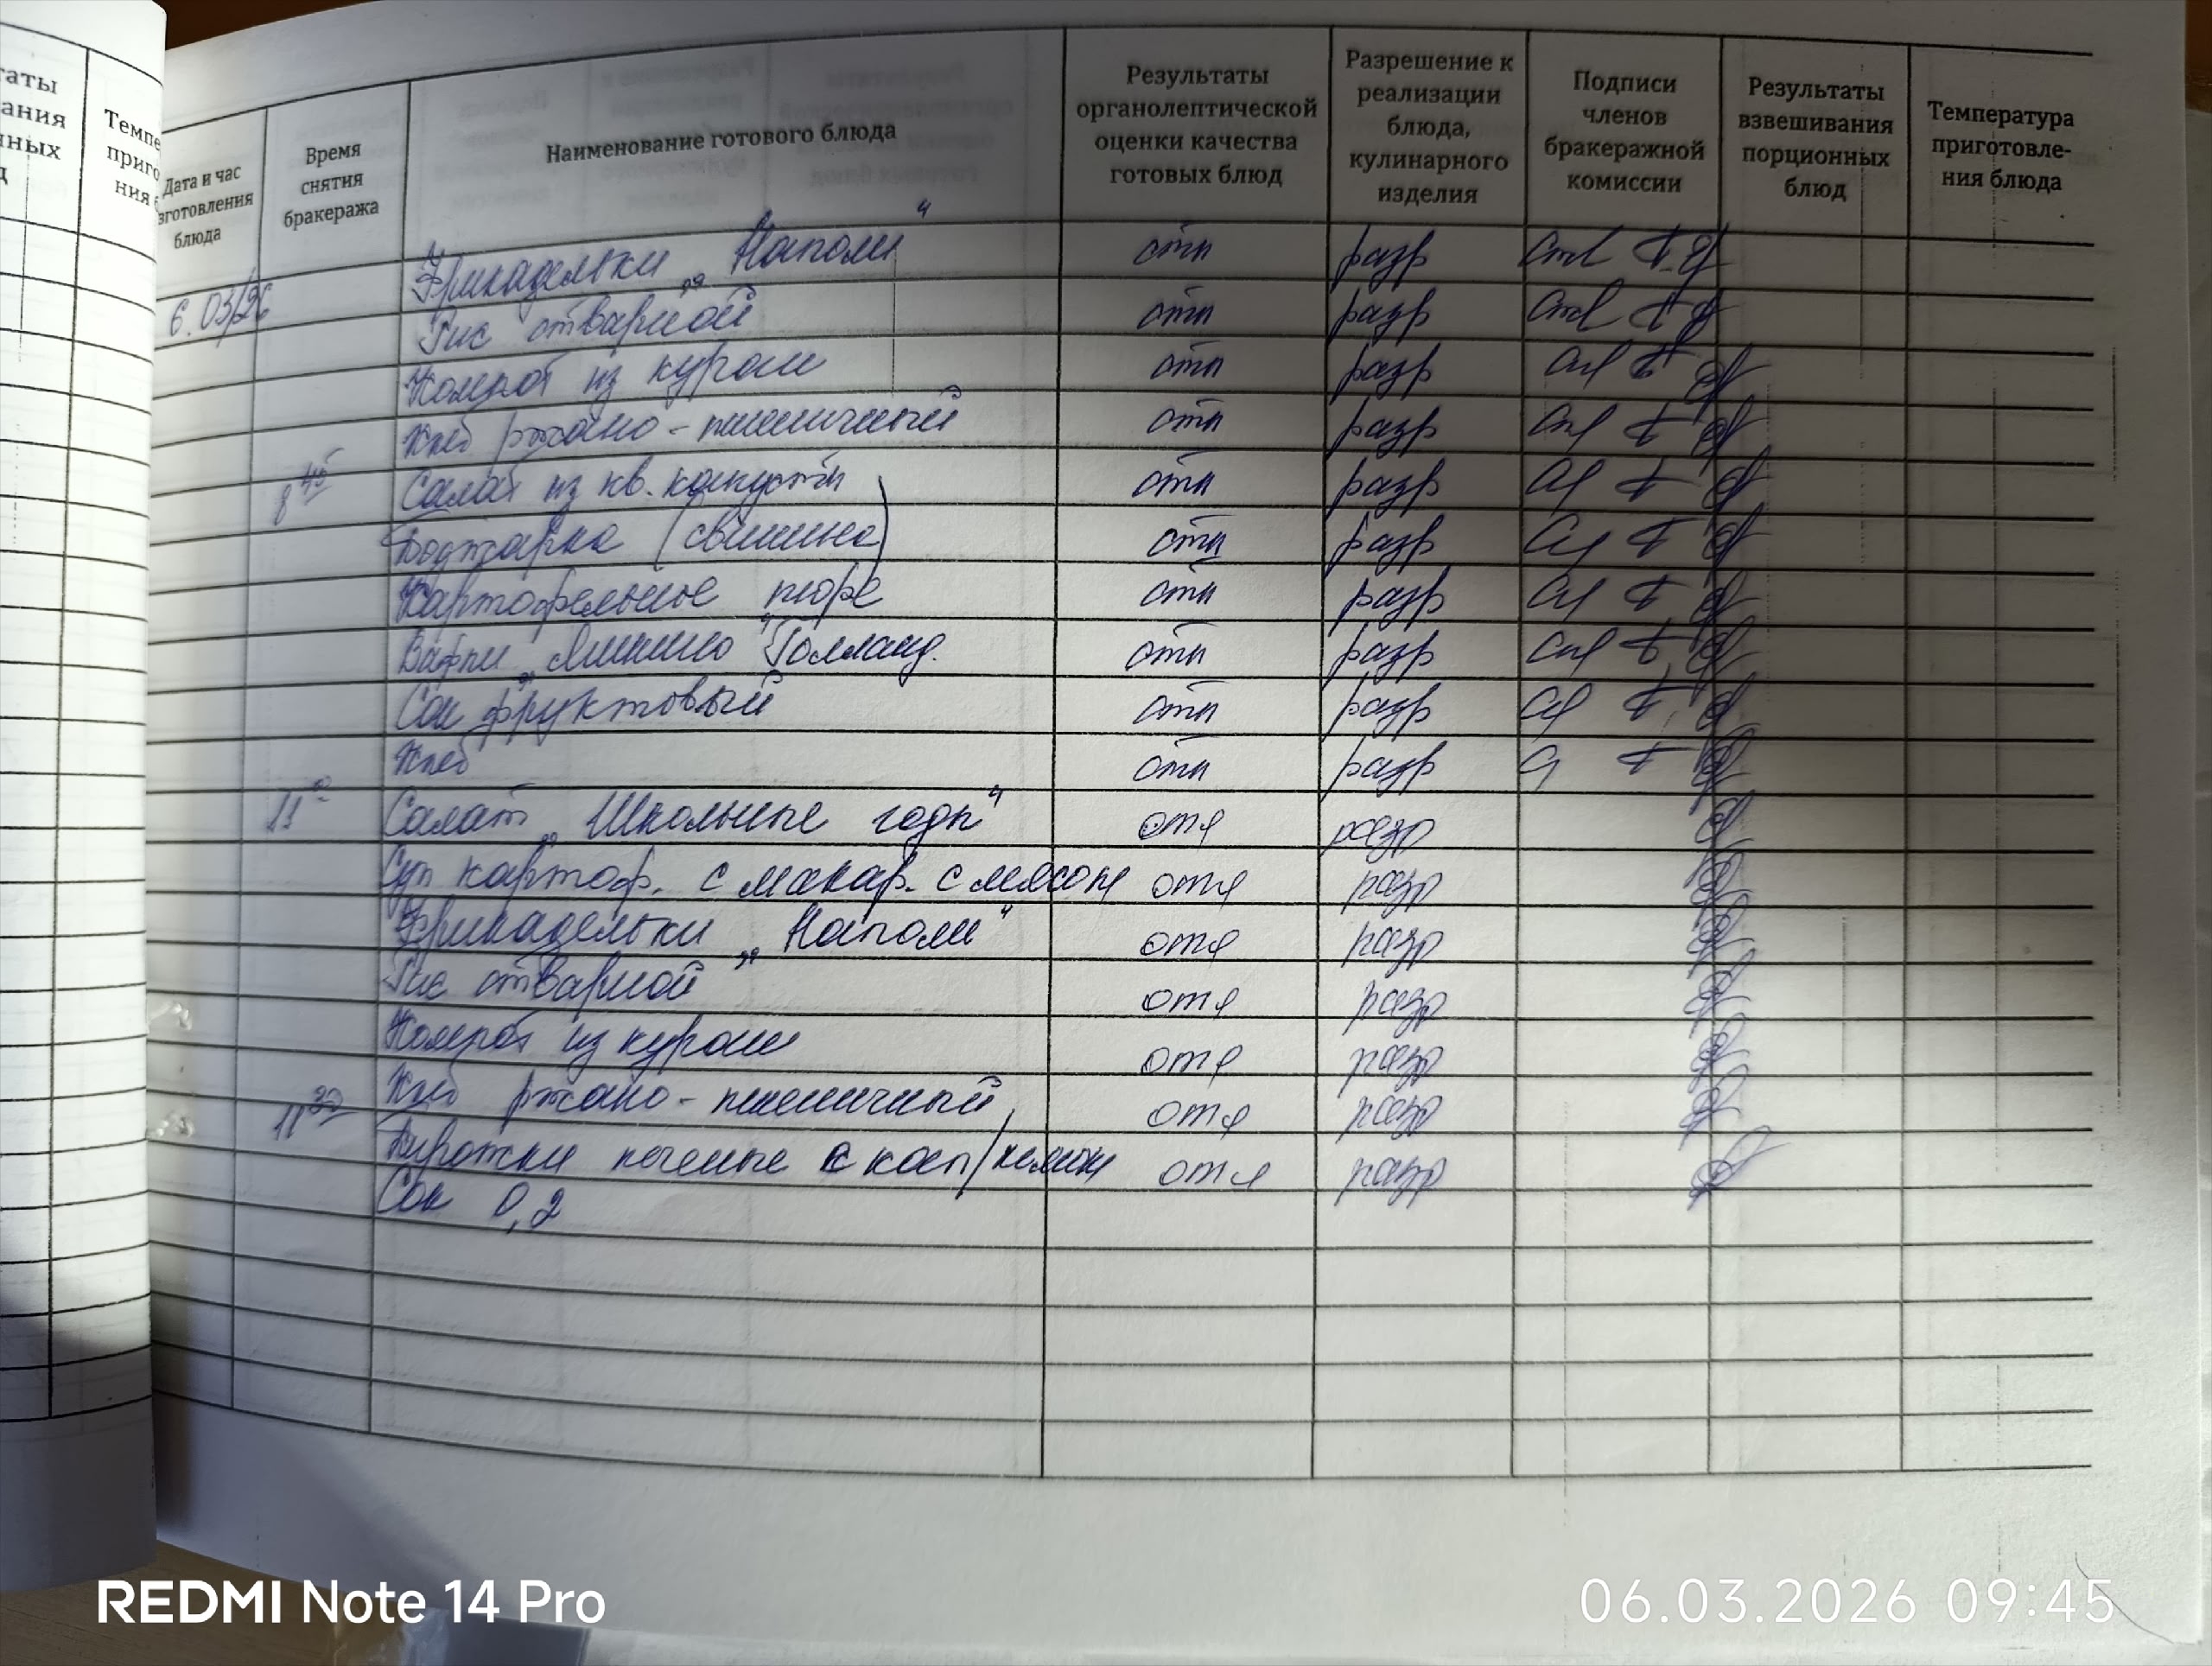 таты
ания
нных
д
Темпе
приго
ния б
Дата и час
зготовления
блюда
Время
снятия
бракеража
Наименование готового блюда
Результаты
органолептической
оценки качества
готовых блюд
Разрешение к
реализации
блюда,
кулинарного
изделия
Подписи
членов
бракеражной
комиссии
Результаты
взвешивания
порционных
блюд
Температура
приготовле-
ния блюда
6.03/26 Фрикадельки „Наполи“ отл разр
Рис отварной отл разр
Компот из кураги отл разр
Хлеб ржано-пшеничный отл разр
8 45 Салат из кв. капусты отл разр
Поджарка (свинина) отл разр
Картофельное пюре отл разр
Вафли „ “Голланд. отл разр
Сок фруктовый отл разр
Хлеб отл разр
11 Салат „Школьные годы“ отл разр
Суп картоф. с макар. с мясом отл разр
Фрикадельки „Наполи“ отл разр
Рис отварной отл разр
Компот из кураги отл разр
11 Хлеб ржано-пшеничный отл разр
Пирожки печеные с кап/ отл разр
Сок 0,2
REDMI Note 14 Pro
06.03.2026 09:45